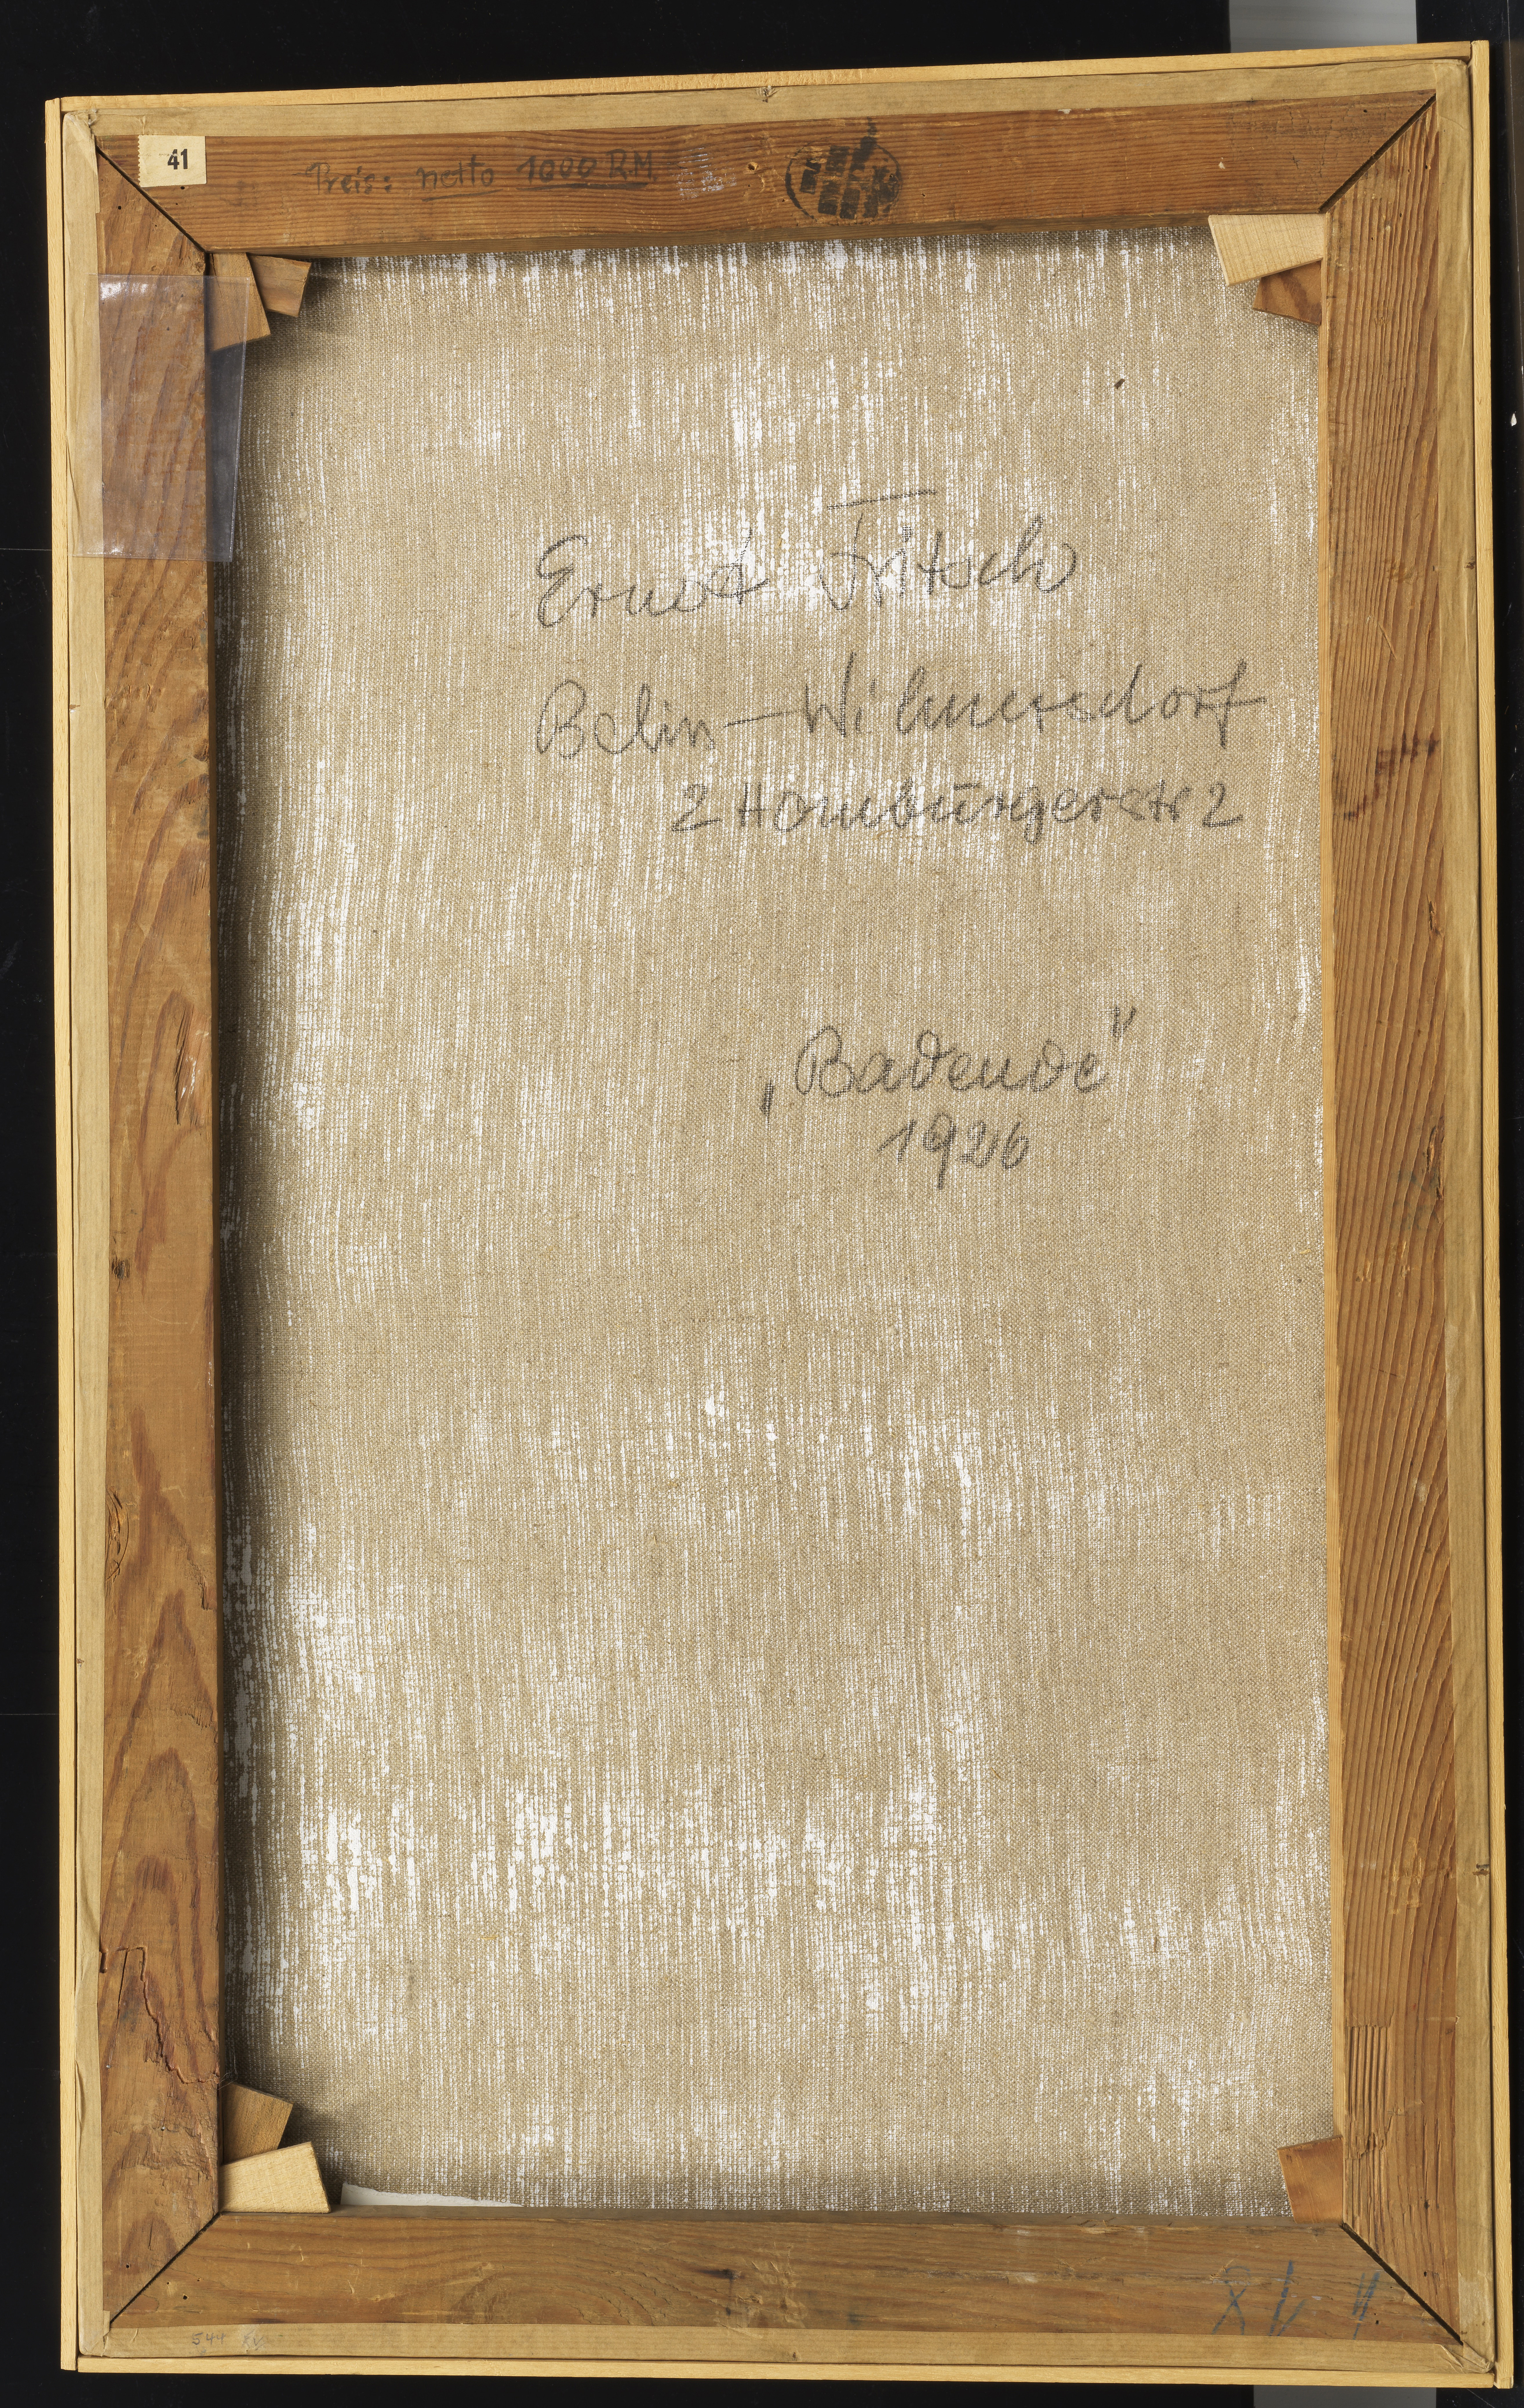 41
Preis: netto 1000 R.M.
Ernst Fritsch
Belin-Wilmersdorf
2 Homburgerstr 2
„Badende"
1926